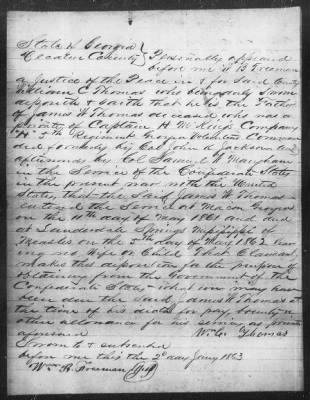 State of Georgia
Decatur County } Personally appeared
before me W B Freeman
a Justice of the Peace in & for said County
William C Thomas who being duly sworn
deposeth & saith that he is the Father
of James W Thomas deceased who was a
private of Captain H McKing's Company
"H" 5th Regiment Georgia Volunteers Commanded
formerly by Col John K Jackson and
afterwards by Col Samuel W Mangham
in the Service of the Confederate States
in the present war with the United
States, that the said James W Thomas
entered the Service at Macon Georgia
on the 11th day of May 1861 and died
at Lauderdale Springs Mississippi of
Measles on the 5th day of May 1862 leaving
no Wife or Child That Claimant
makes this deposition for the purpose of
obtaining from the Government of the
Confederate States what ever may have
been due the said James W Thomas at
the time of his death for pay, bounty or
other allowance for his services as private
aforesaid Wm C. Thomas
Sworn to & subscribed
before me this the 2d day Jany 1863
Wm B. Freeman (JP)